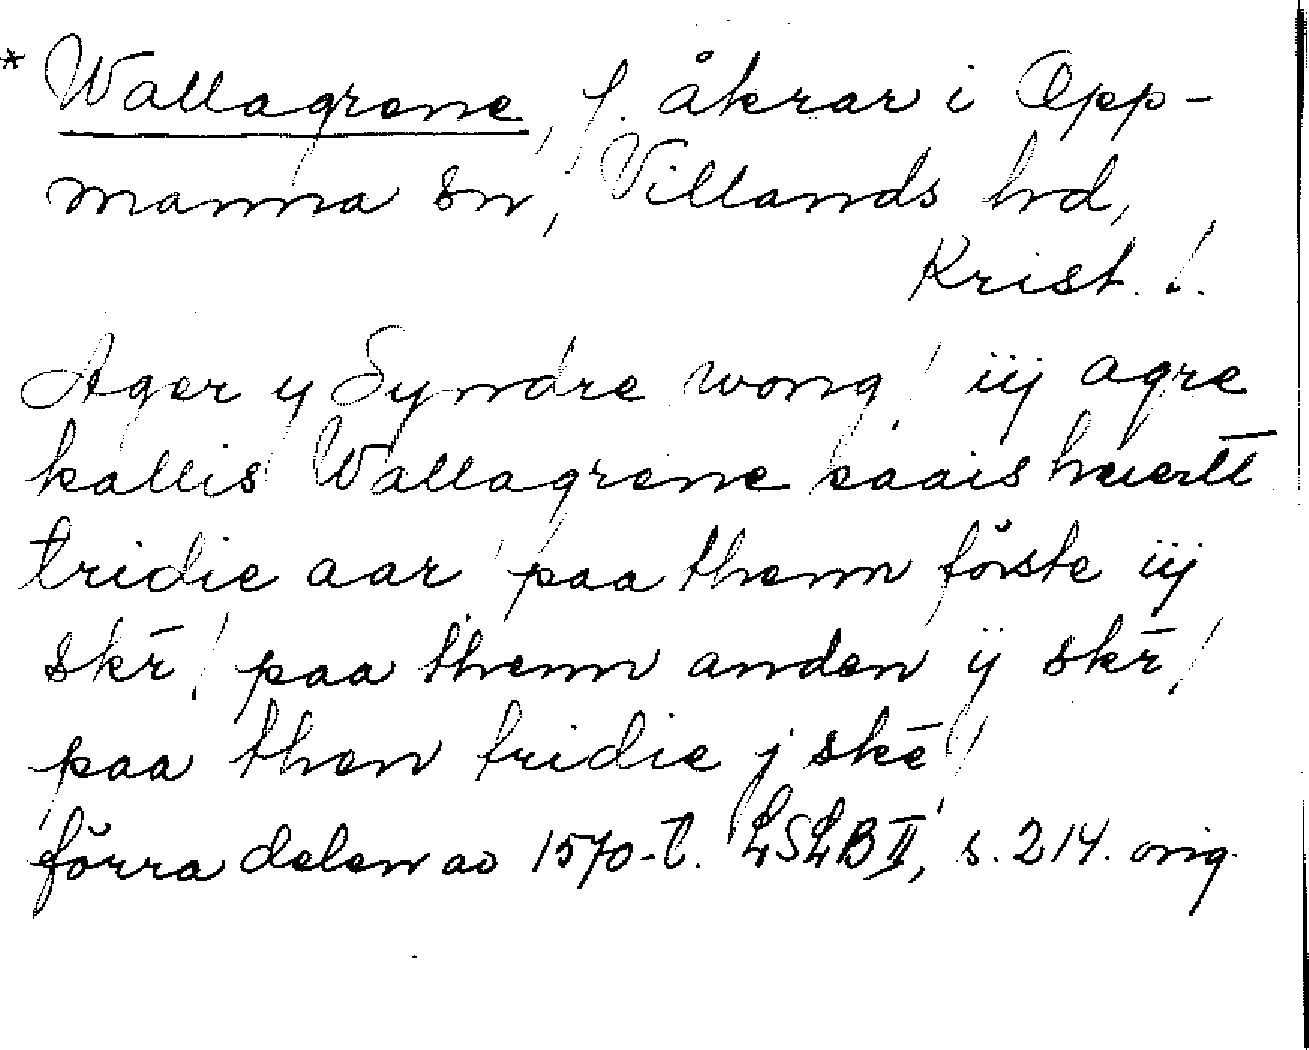 * Wallagrene, f. åkrar i Opp-
manna sn, Villands hd,
Krist. l.
Ager y Syndre wong / iij agre
kallis Wallagrene saais huertt
tridie aar / paa thenn förste iij
skr̄ / paa thenn anden ij skr̄ /
paa then tridie j skē /
förra delen av 1570-t. LSLB II, s. 214. orig.